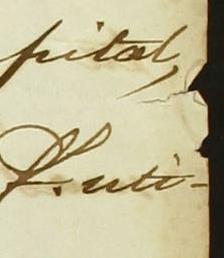 pital,
P. uti-